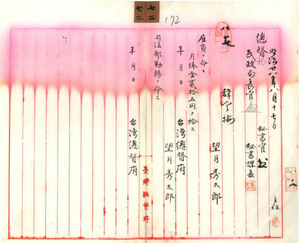 七二
172
明治廿八年八月十七日
總督
民政局長官
秘書官
秘書課長
主任
辭令案
望月秀太郎
雇員ヲ命ス
月俸金貳拾五円ヲ給ス
年月日
台湾總督府
望月秀太郎
司法部勤務ヲ命ス
年月日
台湾總督府
臺灣總督府